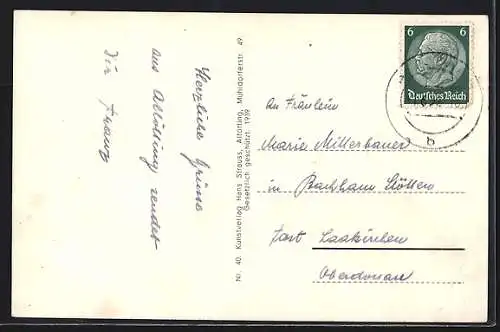 Herzliche Grüsse
aus Altötting sendet
Dir Franz
Nr. 40. Kunstverlag Hans Strauss, Altötting, Mühldorferstr. 49
Gesetzlich geschützt. 1939
6 6
Deutsches Reich
b
An Fräulein
Marie Mitterbauer
in
Post Laakirchen
Oberdonau